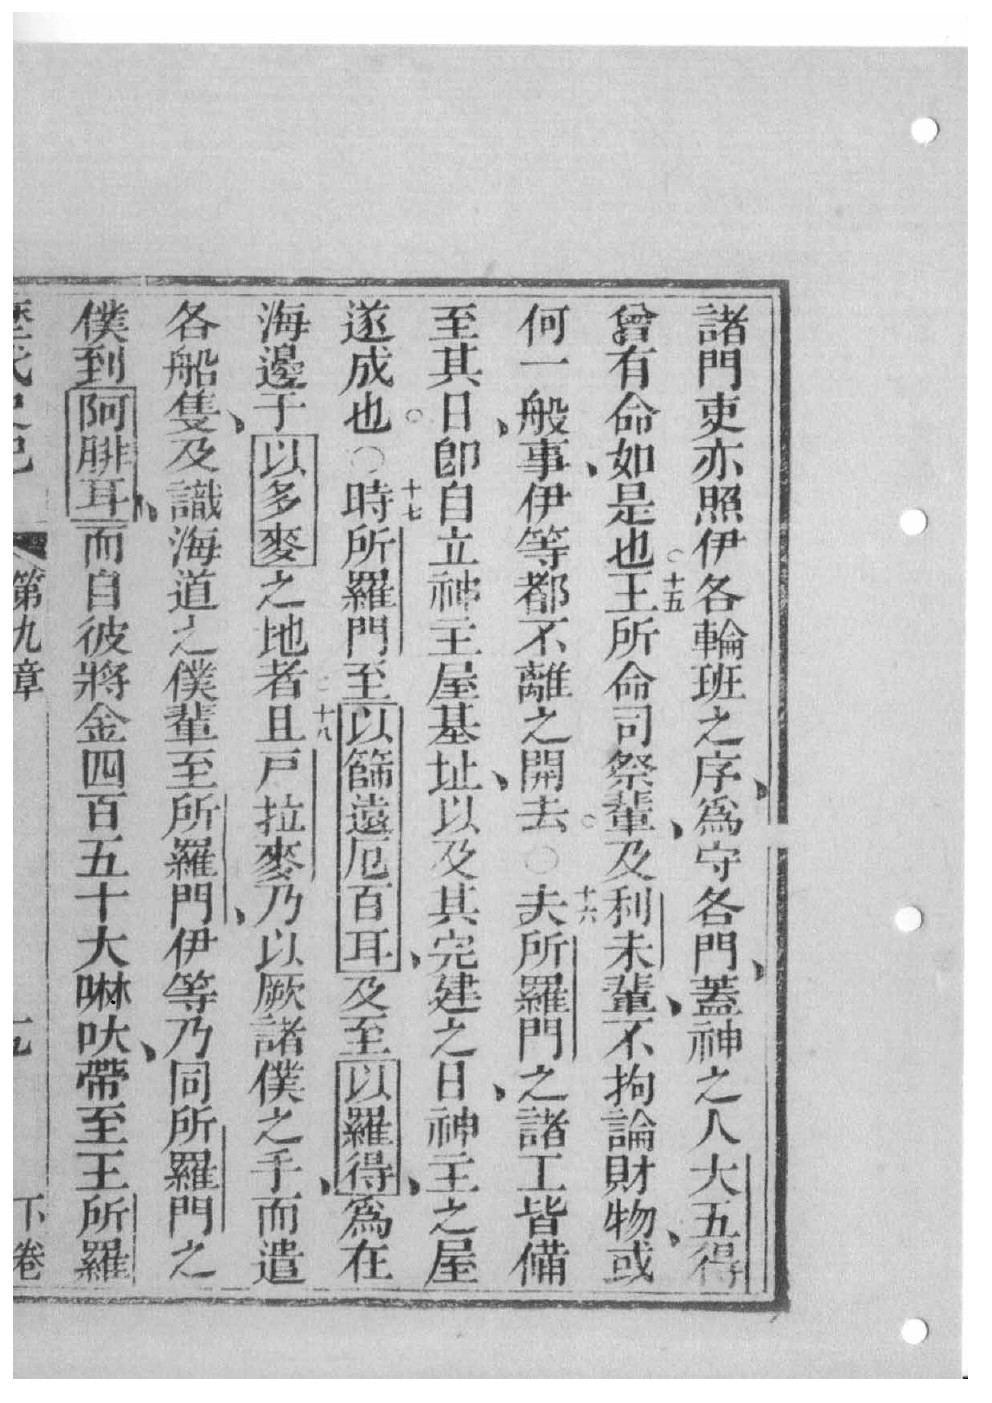 諸門吏亦照伊各輪班之序、爲守各門、蓋神之人大五得
曾有命如是也。十五王所命司祭輩、及利未輩、不拘論財物、或
何一般事、伊等都不離之開去。○十六夫所羅門之諸工皆備
至其日、卽自立神主屋基址、以及其完建之日、神主之屋
遂成也。○十七時所羅門至以篩遠厄百耳、及至以羅得、爲在
海邊于以多麥之地者十八且戶拉麥乃以厥諸僕之手、而遣
各船隻、及識海道之僕輩至所羅門、伊等乃同所羅門之
僕到阿腓耳、而自彼將金四百五十大啉呔、帶至王所羅
歷代史紀 第九章 下卷